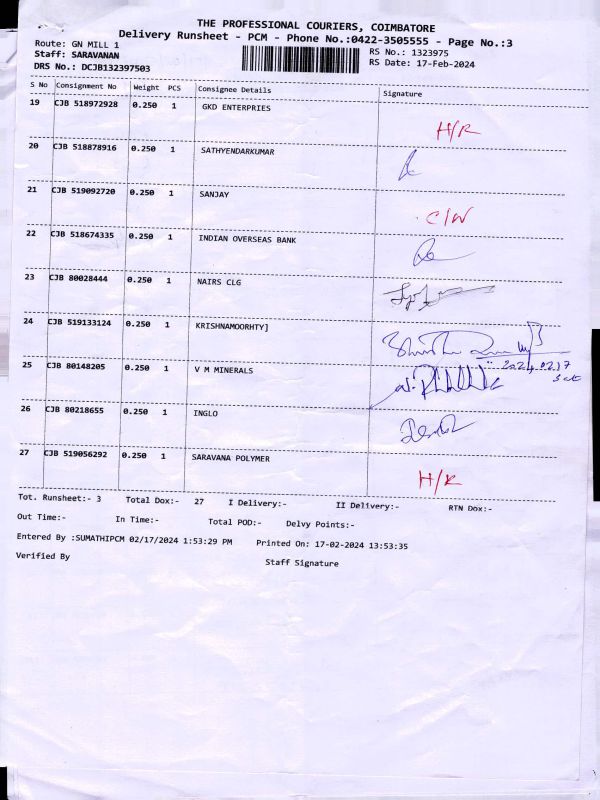 THE PROFESSIONAL COURIERS, COIMBATORE
Delivery Runsheet - PCM - Phone No.:0422-3505555 - Page No.:3
Route: GN MILL 1 RS No.: 1323975
Staff: SARAVANAN RS Date: 17-Feb-2024
DRS No.: DCJB132397503
S No Consignment No Weight PCS Consignee Details Signature
19 CJB 518972928 0.250 1 GKD ENTERPRIES
H/R
20 CJB 518878916 0.250 1 SATHYENDARKUMAR
21 CJB 519092720 0.250 1 SANJAY
C/W
22 CJB 518674335 0.250 1 INDIAN OVERSEAS BANK
23 CJB 80028444 0.250 1 NAIRS CLG
24 CJB 519133124 0.250 1 KRISHNAMOORHTY]
25 CJB 80148205 0.250 1 V M MINERALS
26 CJB 80218655 0.250 1 INGLO
27 CJB 519056292 0.250 1 SARAVANA POLYMER
H/R
Tot. Runsheet:- 3 Total Dox:- 27 I Delivery:- II Delivery:- RTN Dox:-
Out Time:- In Time:- Total POD:- Delvy Points:-
Entered By :SUMATHIPCM 02/17/2024 1:53:29 PM Printed On: 17-02-2024 13:53:35
Verified By Staff Signature